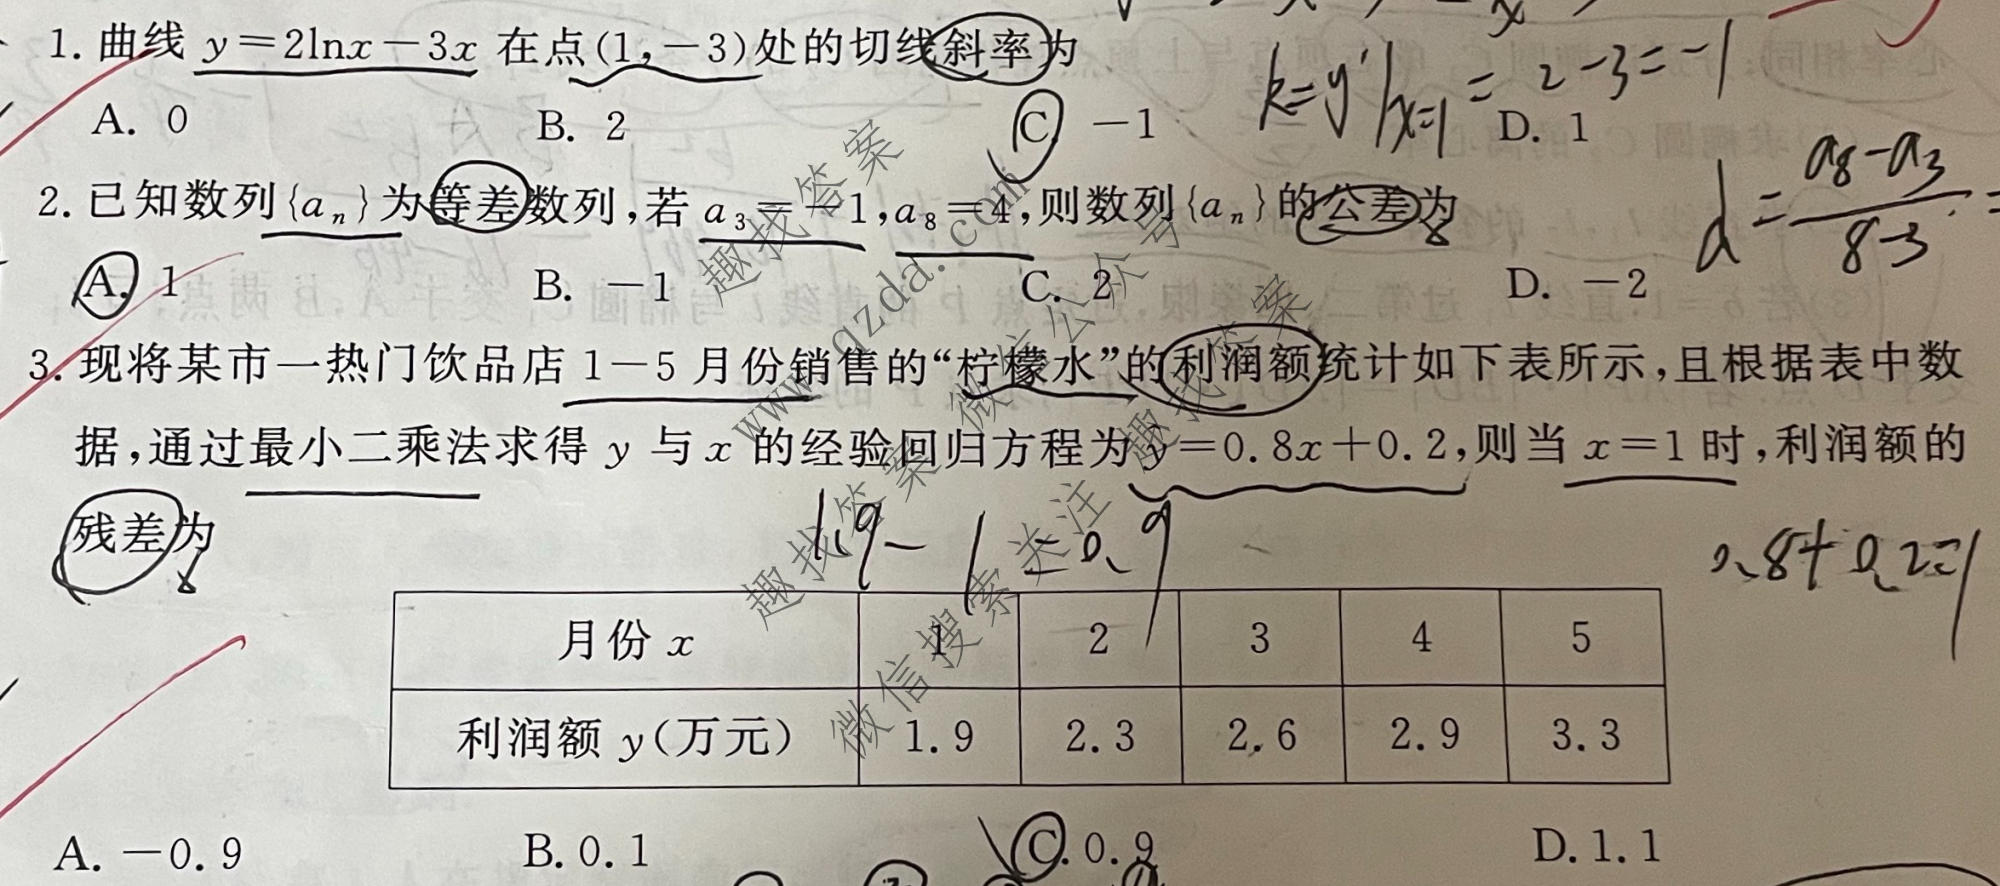 1. 曲线 y=2lnx-3x 在点(1,-3)处的切线斜率为
k=y'|x=1 = 2-3=-1
A. 0 B. 2 C. -1 D. 1
2. 已知数列{aₙ}为等差数列,若 a₃=-1,a₈=4,则数列{aₙ}的公差为
d=(a₈-a₃)/(8-3)=
A. 1 B. -1 C. 2 D. -2
3. 现将某市一热门饮品店 1-5 月份销售的“柠檬水”的利润额统计如下表所示,且根据表中数
据,通过最小二乘法求得 y 与 x 的经验回归方程为 ŷ=0.8x+0.2,则当 x=1 时,利润额的
残差为
1.9-1=0.9
0.8+0.2=1
月份 x 1 2 3 4 5
利润额 y(万元) 1.9 2.3 2.6 2.9 3.3
A. -0.9 B. 0.1 C. 0.9 D. 1.1
趣找答案
www.qzda.com
微信公众号
趣找答案
趣找答案
微信搜索关注